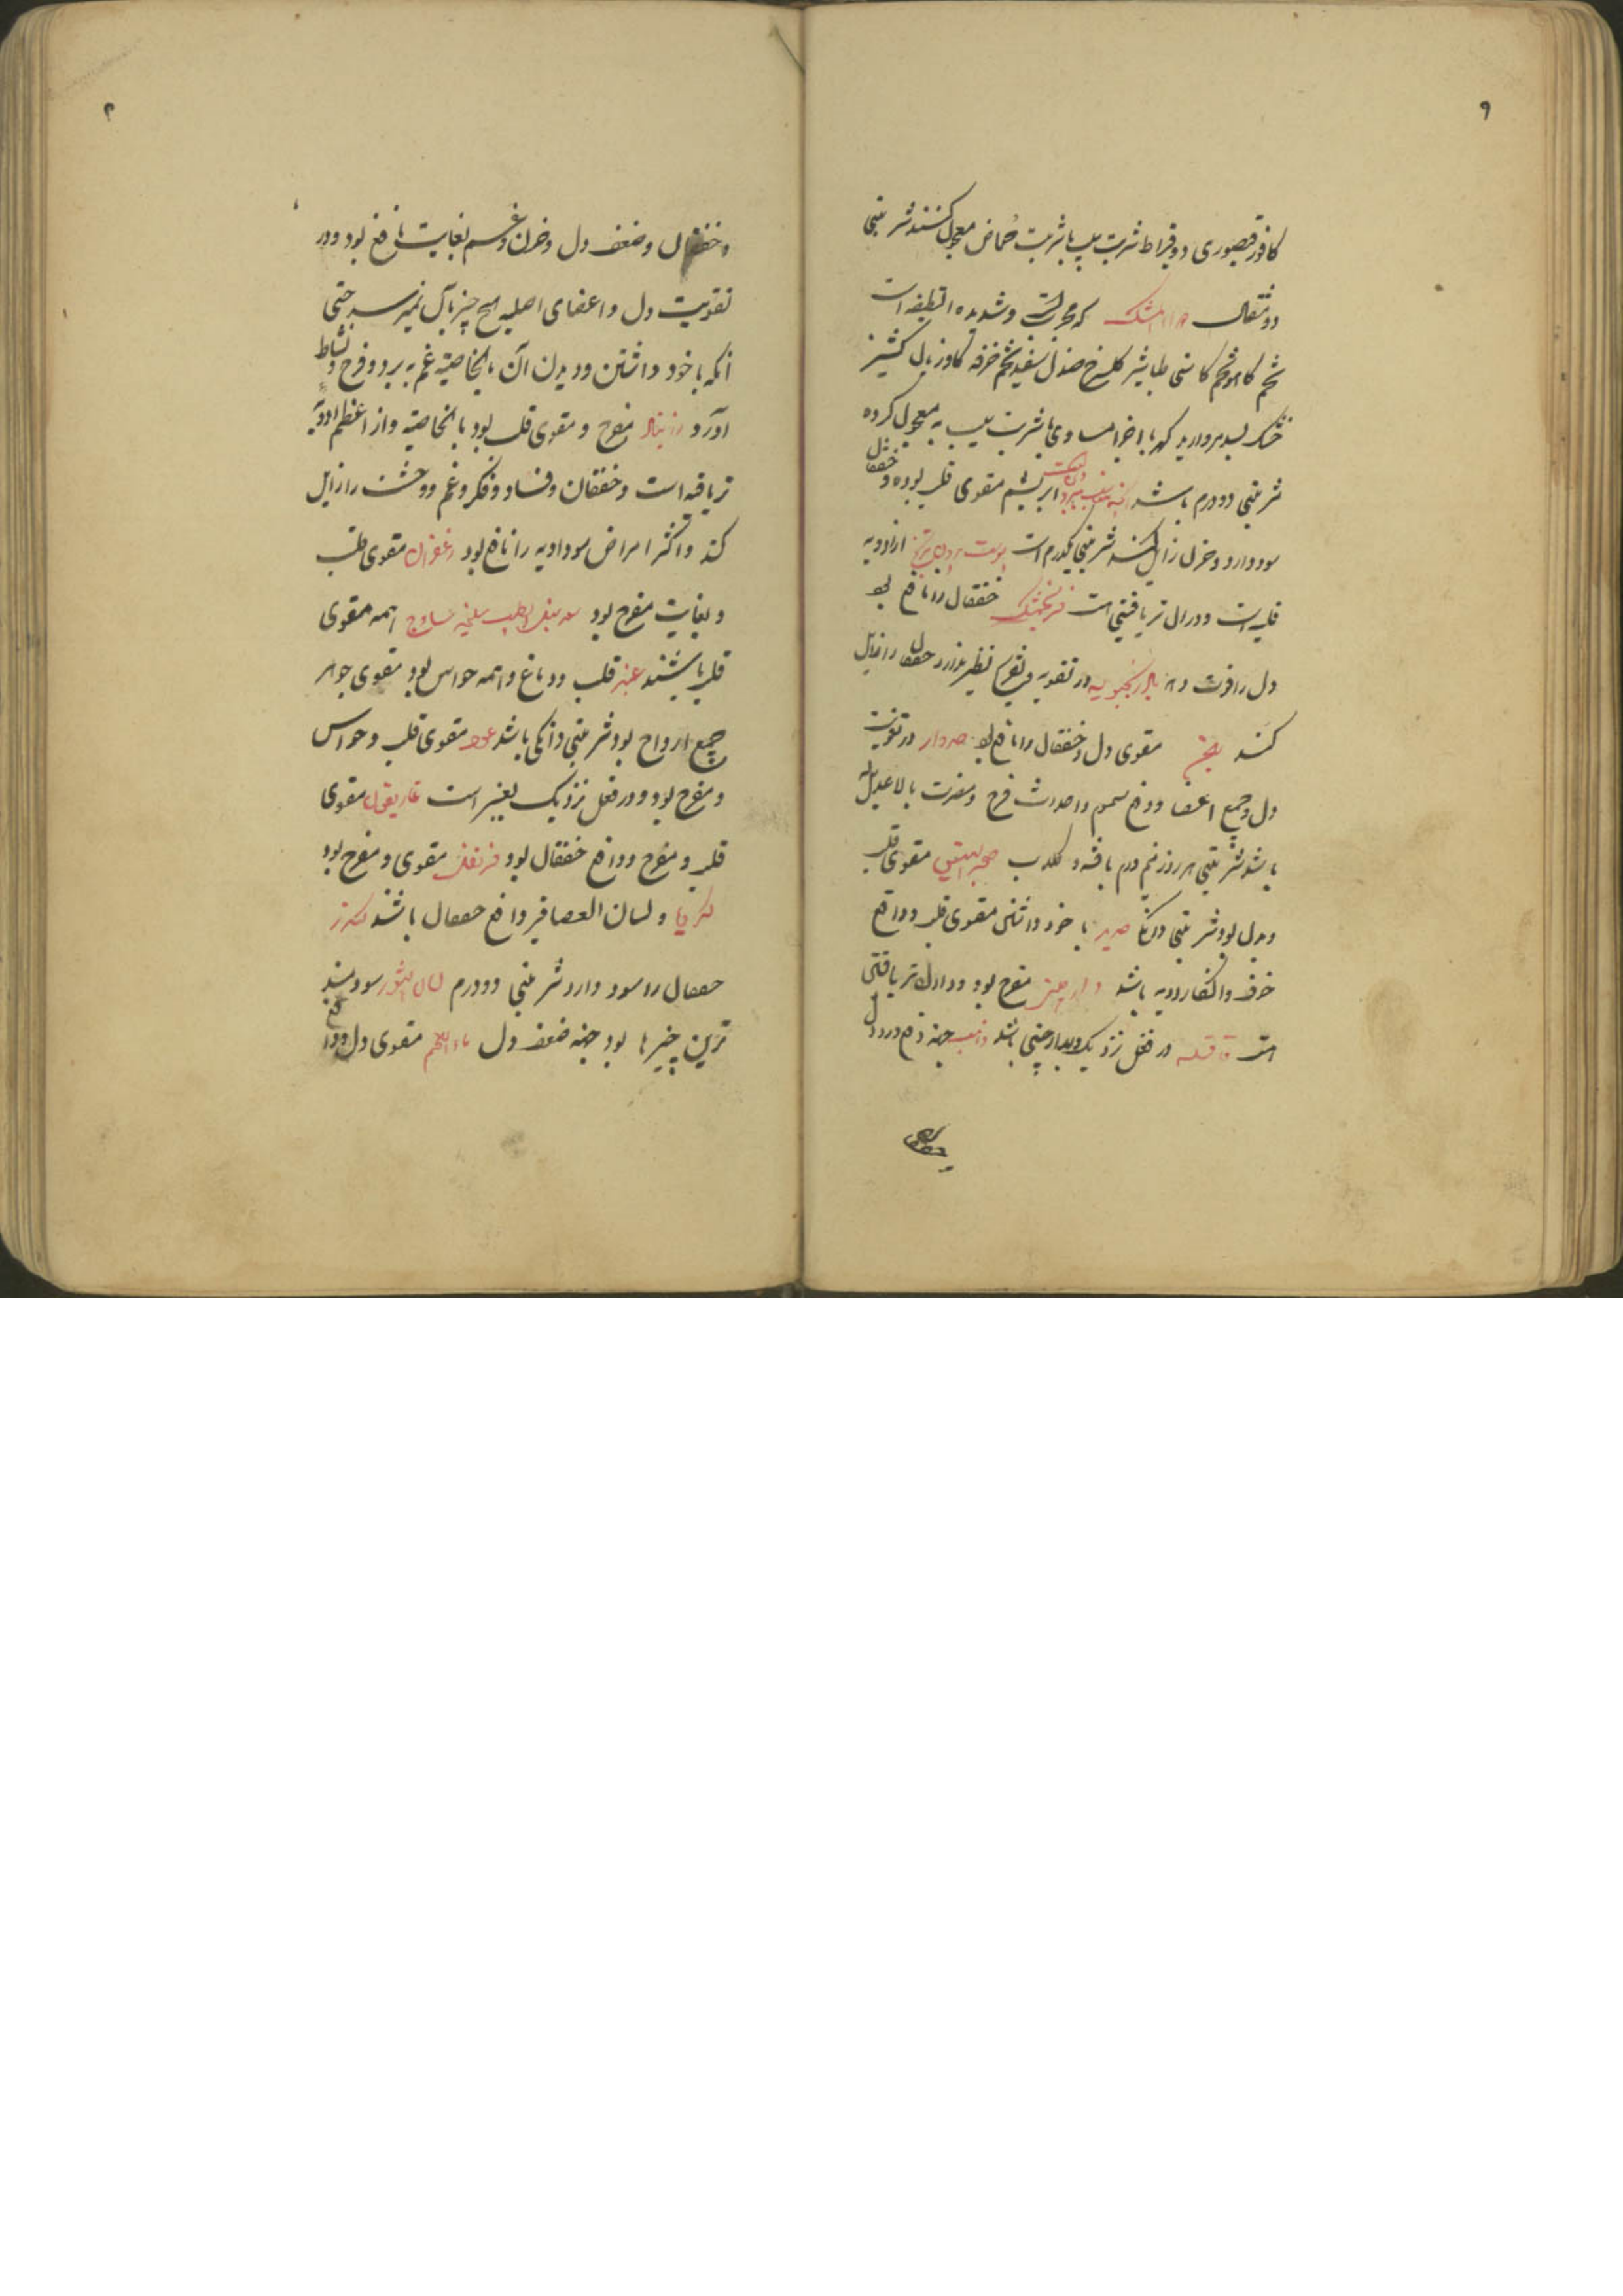 ۹
کافور قیصوری دو قیراط شربت سیب یا شربت حماض معجون کنند شربتی
دو مثقال المشک که مجربست و شدیده اللطیفه است
تخم کاهو تخم کاسنی طباشیر گلسرخ صندل سفید تخم خرفه گاوزبان کشنیز
خشک بسد مروارید کهربا اجزا مساوی با شربت سیب به معجون کرده
شربتی دو درم باشد ابریشم مقوی قلب بود و خفقان
سود دارد و حزن زایل کند شربتی یکدرم است پوست برون ترنج از ادویه
قلبیه است و در آن تریاقیتی است فرنجمشک خفقان را نافع بود
دل را قوت دهد بادرنجبویه در تقویه و تفریح نظیر ندارد خفقان را زایل
کند مقوی دل و خفقان را نافع بود جدوار در تقویت
دل و جمیع اعضا و دفع سموم و احداث فرح و مسرت بلا عدیل
باشد شربتی هر روز نیم درم با قند و گلاب حجر الیشب مقوی قلب
و بدل بود شربتی دانگی با خود داشتن مقوی قلب و دافع
خوف و افکار ردیه باشد دارچینی مفرح بود و در آن تریاقیتی
است قاقله در فعل نزدیک بدارچینی باشد ذهب جهة دفع درد دل
و خفقان
۲
و خفقان و ضعف دل و حزن و غم بغایت نافع بود و در
تقویت دل و اعضای اصلیه هیچ چیز بآن نمیرسد حتی
آنکه با خود داشتن و دیدن آن بالخاصیة غم به برد و فرح و نشاط
آورد زرنباد مفرح و مقوی قلب بود بالخاصیة و از اعظم ادویه
تریاقیه است و خفقان و فساد و فکر و غم و وحشت را زایل
کند و اکثر امراض سوداویه را نافع بود زعفران مقوی قلب
و بغایت مفرح بود سعد سنبل الطیب سلیخه ساذج همه مقوی
قلب باشند عنبر قلب و دماغ و همه حواس بود مقوی جوهر
جمیع ارواح بود شربتی دانکی باشد عود مقوی قلب و حواس
و مفرح بود و در فعل نزدیک بعنبر است غاریقون مقوی
قلب و مفرح و دافع خفقان بود قرنفل مقوی و مفرح بود
کهربا و لسان العصافیر دافع خفقان باشند
خفقان را سود دارد شربتی دو درم لسان الثور سودمند
ترین چیزها بود جهة ضعف دل ماء اللحم مقوی دل و دافع